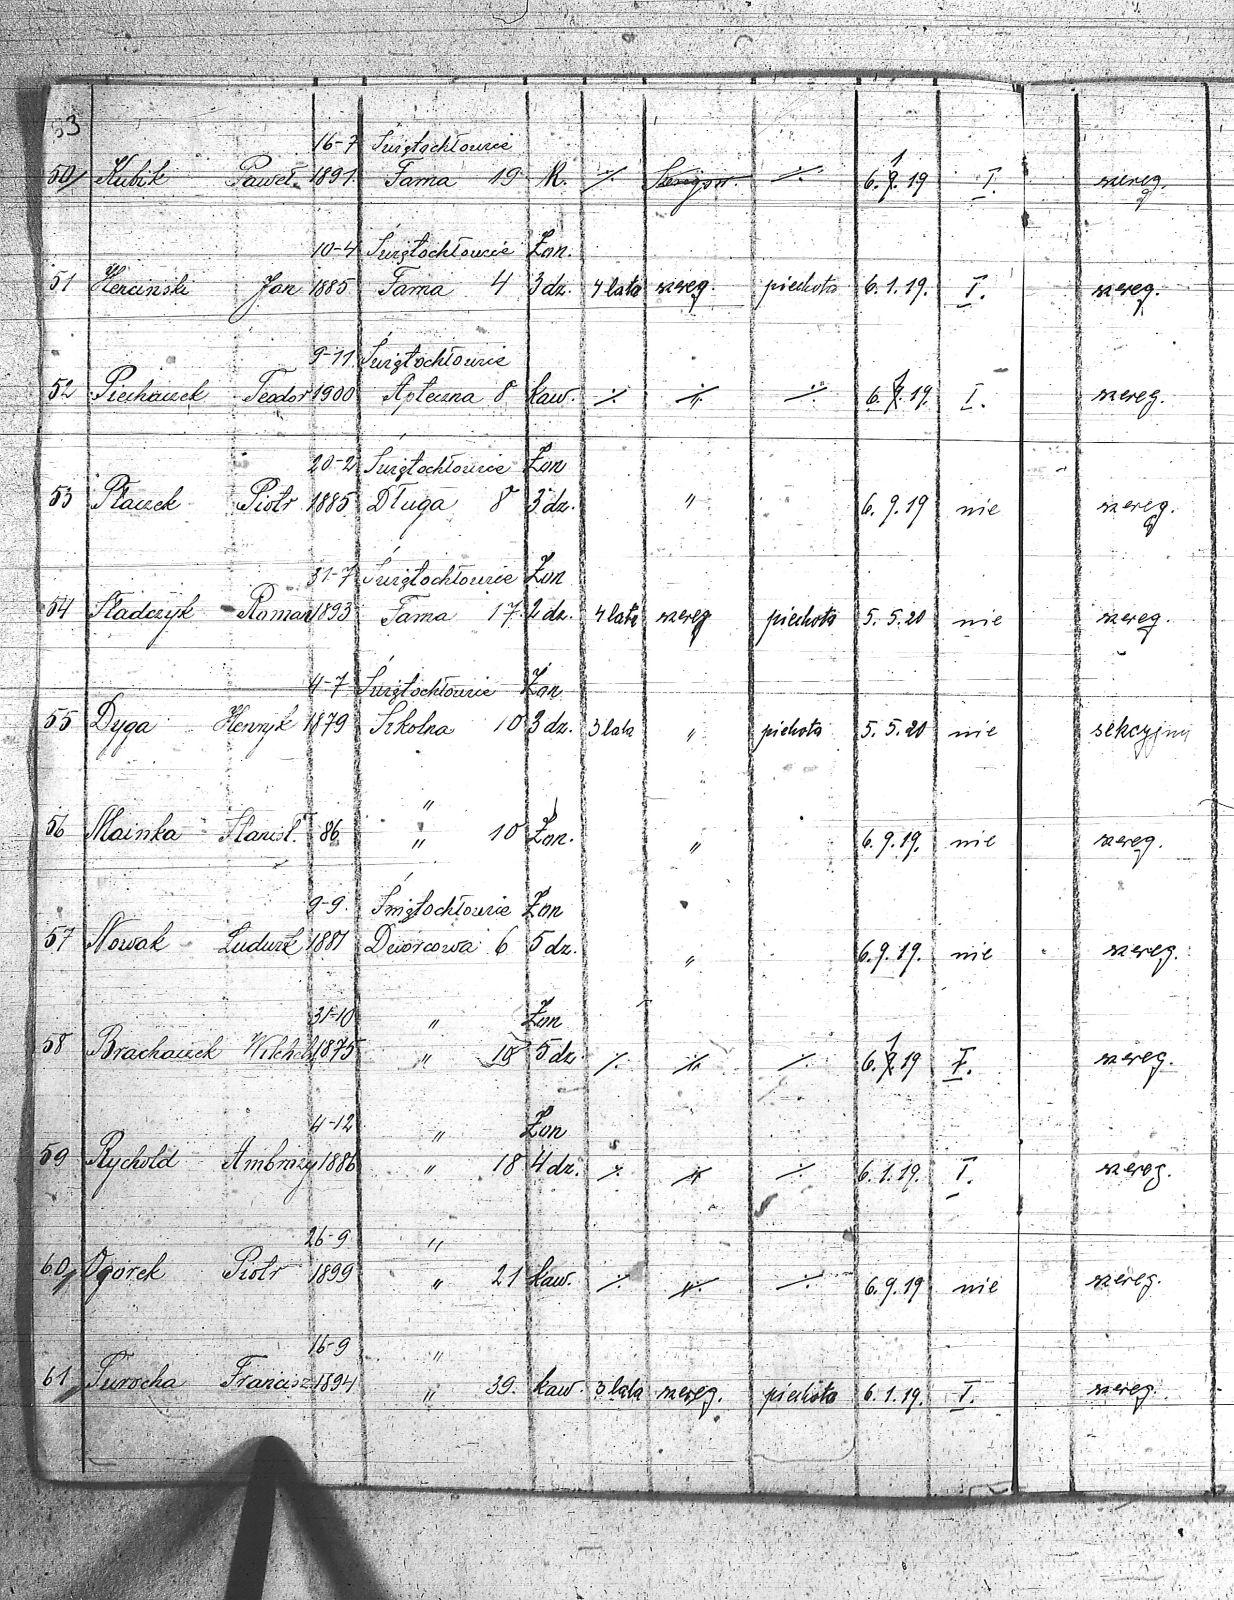 53
16-7 Świętochłowice
50/ Kubik Paweł. 1891. Fama 19 K. ·/. Szeregow. ·/. 6.1.19 I. szereg.
10-4 Świętochłowice Żon.
51 Herciński Jan 1885 Fama 4 3 dz. 4 lata szereg. piechota 6.1.19. I. szereg.
9-11. Świętochłowice
52 Piechaczek Teodor 1900 Apteczna 8 kaw. ·/. ·/. ·/. 6.1.19. I. szereg.
20-2 Świętochłowice Żon
53 Płaczek Piotr 1885 Długa 8 3 dz. " 6.9.19 nie szereg.
31-7 Świętochłowice Żon
54 Sładczyk Roman 1893 Fama 17. 2 dz. 4 lata szereg piechota 5.5.20 nie szereg.
4-7 Świętochłowice Żon
55 Dyga Henryk 1879 Szkolna 10 3 dz. 3 lata " piechota 5.5.20 nie sekcyjny
"
56 Mainka Stanisł. 86 " 10 Żon. " 6.9.19. nie szereg.
9-9. Świętochłowice Żon
57 Nowak Ludwik 1881 Dworcowa 6 5 dz. " 6.9.19. nie szereg.
31-10 " Żon
58 Brachaczek 1875 " 18 5 dz. ·/. ·/. ·/. 6.1.19 I. szereg.
4-12 " Żon
59 Rychold Ambroży 1886 " 18 4 dz. ·/. ·/. ·/. 6.1.19. I. szereg.
26-9 "
60/ Ogórek Piotr 1899 " 21 kaw. ·/. ·/. ·/. 6.9.19 nie szereg.
16-9 "
61 Furocha Francisz. 1894 " 39. kaw. 3 lata szereg. piechota 6.1.19. I. szereg.